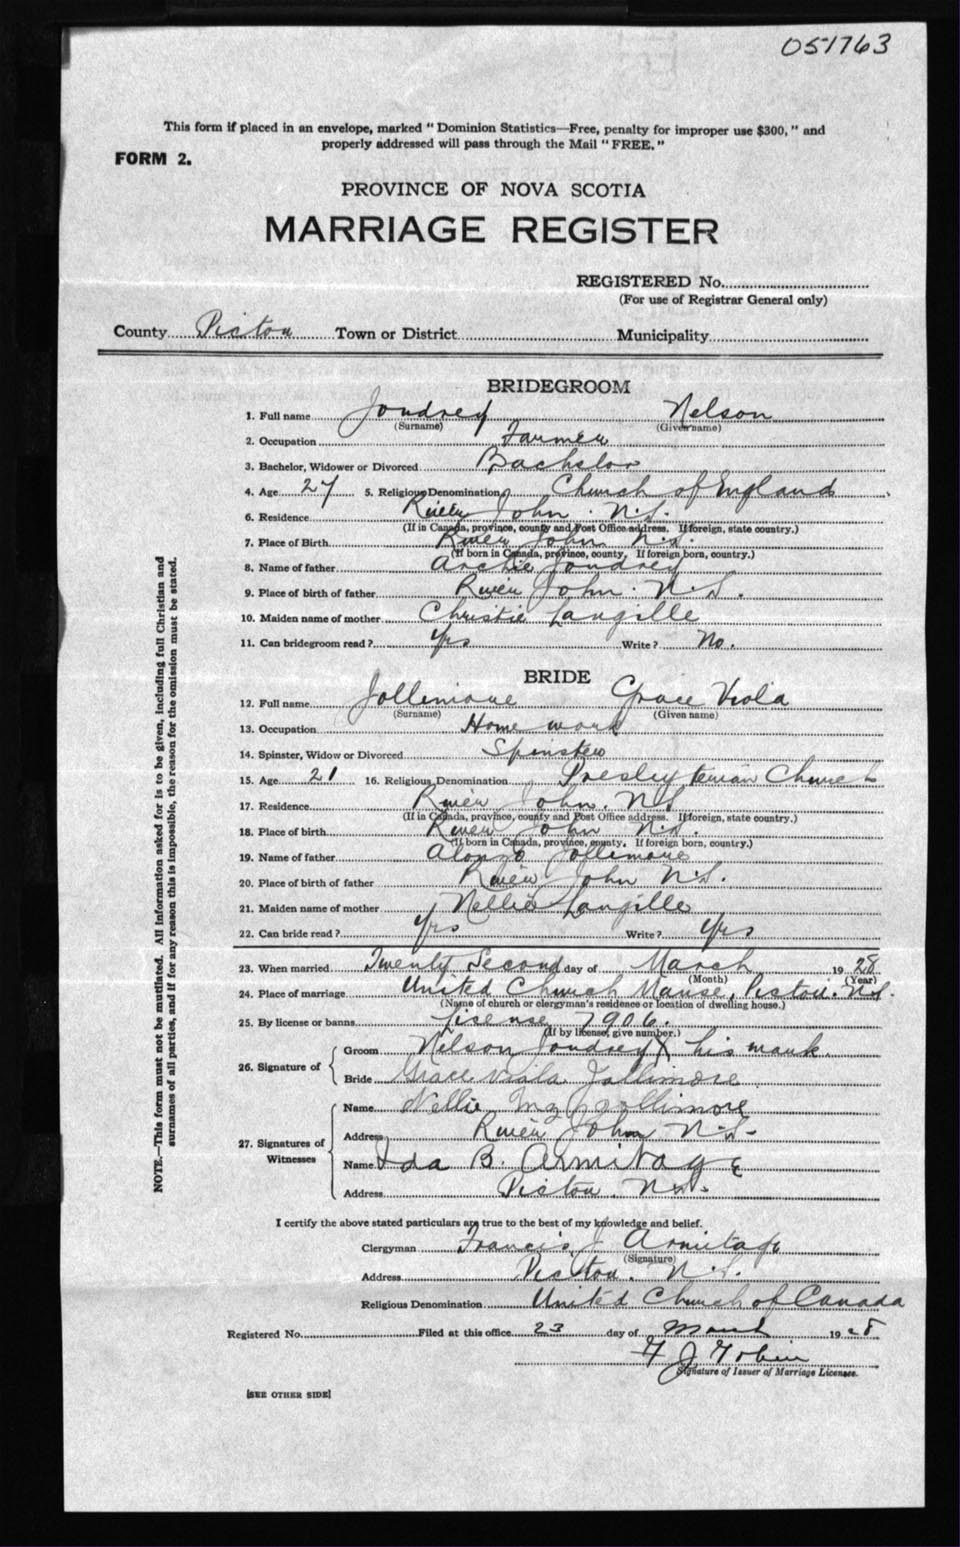 051763
This form if placed in an envelope, marked "Dominion Statistics—Free, penalty for improper use $300," and
properly addressed will pass through the Mail "FREE."
FORM 2.
PROVINCE OF NOVA SCOTIA
MARRIAGE REGISTER
REGISTERED No.
(For use of Registrar General only)
County Pictou Town or District Municipality
BRIDEGROOM
1. Full name Joudrey Nelson
(Surname) (Given name)
2. Occupation Farmer
3. Bachelor, Widower or Divorced Bachelor
4. Age 27 5. Religious Denomination Church of England
6. Residence River John N.S.
(If in Canada, province, county and Post Office address. If foreign, state country.)
7. Place of Birth River John N.S.
(If born in Canada, province, county. If foreign born, country.)
8. Name of father Archie Joudrey
9. Place of birth of father River John N.S.
10. Maiden name of mother Christie Langille
11. Can bridegroom read? Yes Write? No.
BRIDE
12. Full name Jollimore Grace Viola
(Surname) (Given name)
13. Occupation Home work
14. Spinster, Widow or Divorced Spinster
15. Age 21 16. Religious Denomination Presbyterian Church
17. Residence River John. N.S
(If in Canada, province, county and Post Office address. If foreign, state country.)
18. Place of birth River John N.S.
(If born in Canada, province, county. If foreign born, country.)
19. Name of father Alonzo Jollimore
20. Place of birth of father River John N.S.
21. Maiden name of mother Nellie Langille
22. Can bride read? Yes Write? Yes
23. When married Twenty Second day of March 1928
(Month) (Year)
24. Place of marriage United Church Manse, Pictou. N.S.
(Name of church or clergyman's residence or location of dwelling house.)
25. By license or banns License 7906.
(If by license, give number.)
26. Signature of
Groom Nelson Joudrey X his mark
Bride Grace Viola Jollimore
27. Signatures of Witnesses
Name Nellie Jollimore
Address River John N.S.
Name Ida B. Armitage
Address Pictou. N.S.
I certify the above stated particulars are true to the best of my knowledge and belief.
Clergyman Francis J Armitage
(Signature)
Address Pictou. N.S.
Religious Denomination United Church of Canada
Registered No. Filed at this office 23 day of March 1928
Signature of Issuer of Marriage Licenses.
[SEE OTHER SIDE]
NOTE.—This form must not be mutilated. All information asked for is to be given, including full Christian and
surnames of all parties, and if for any reason this is impossible, the reason for the omission must be stated.